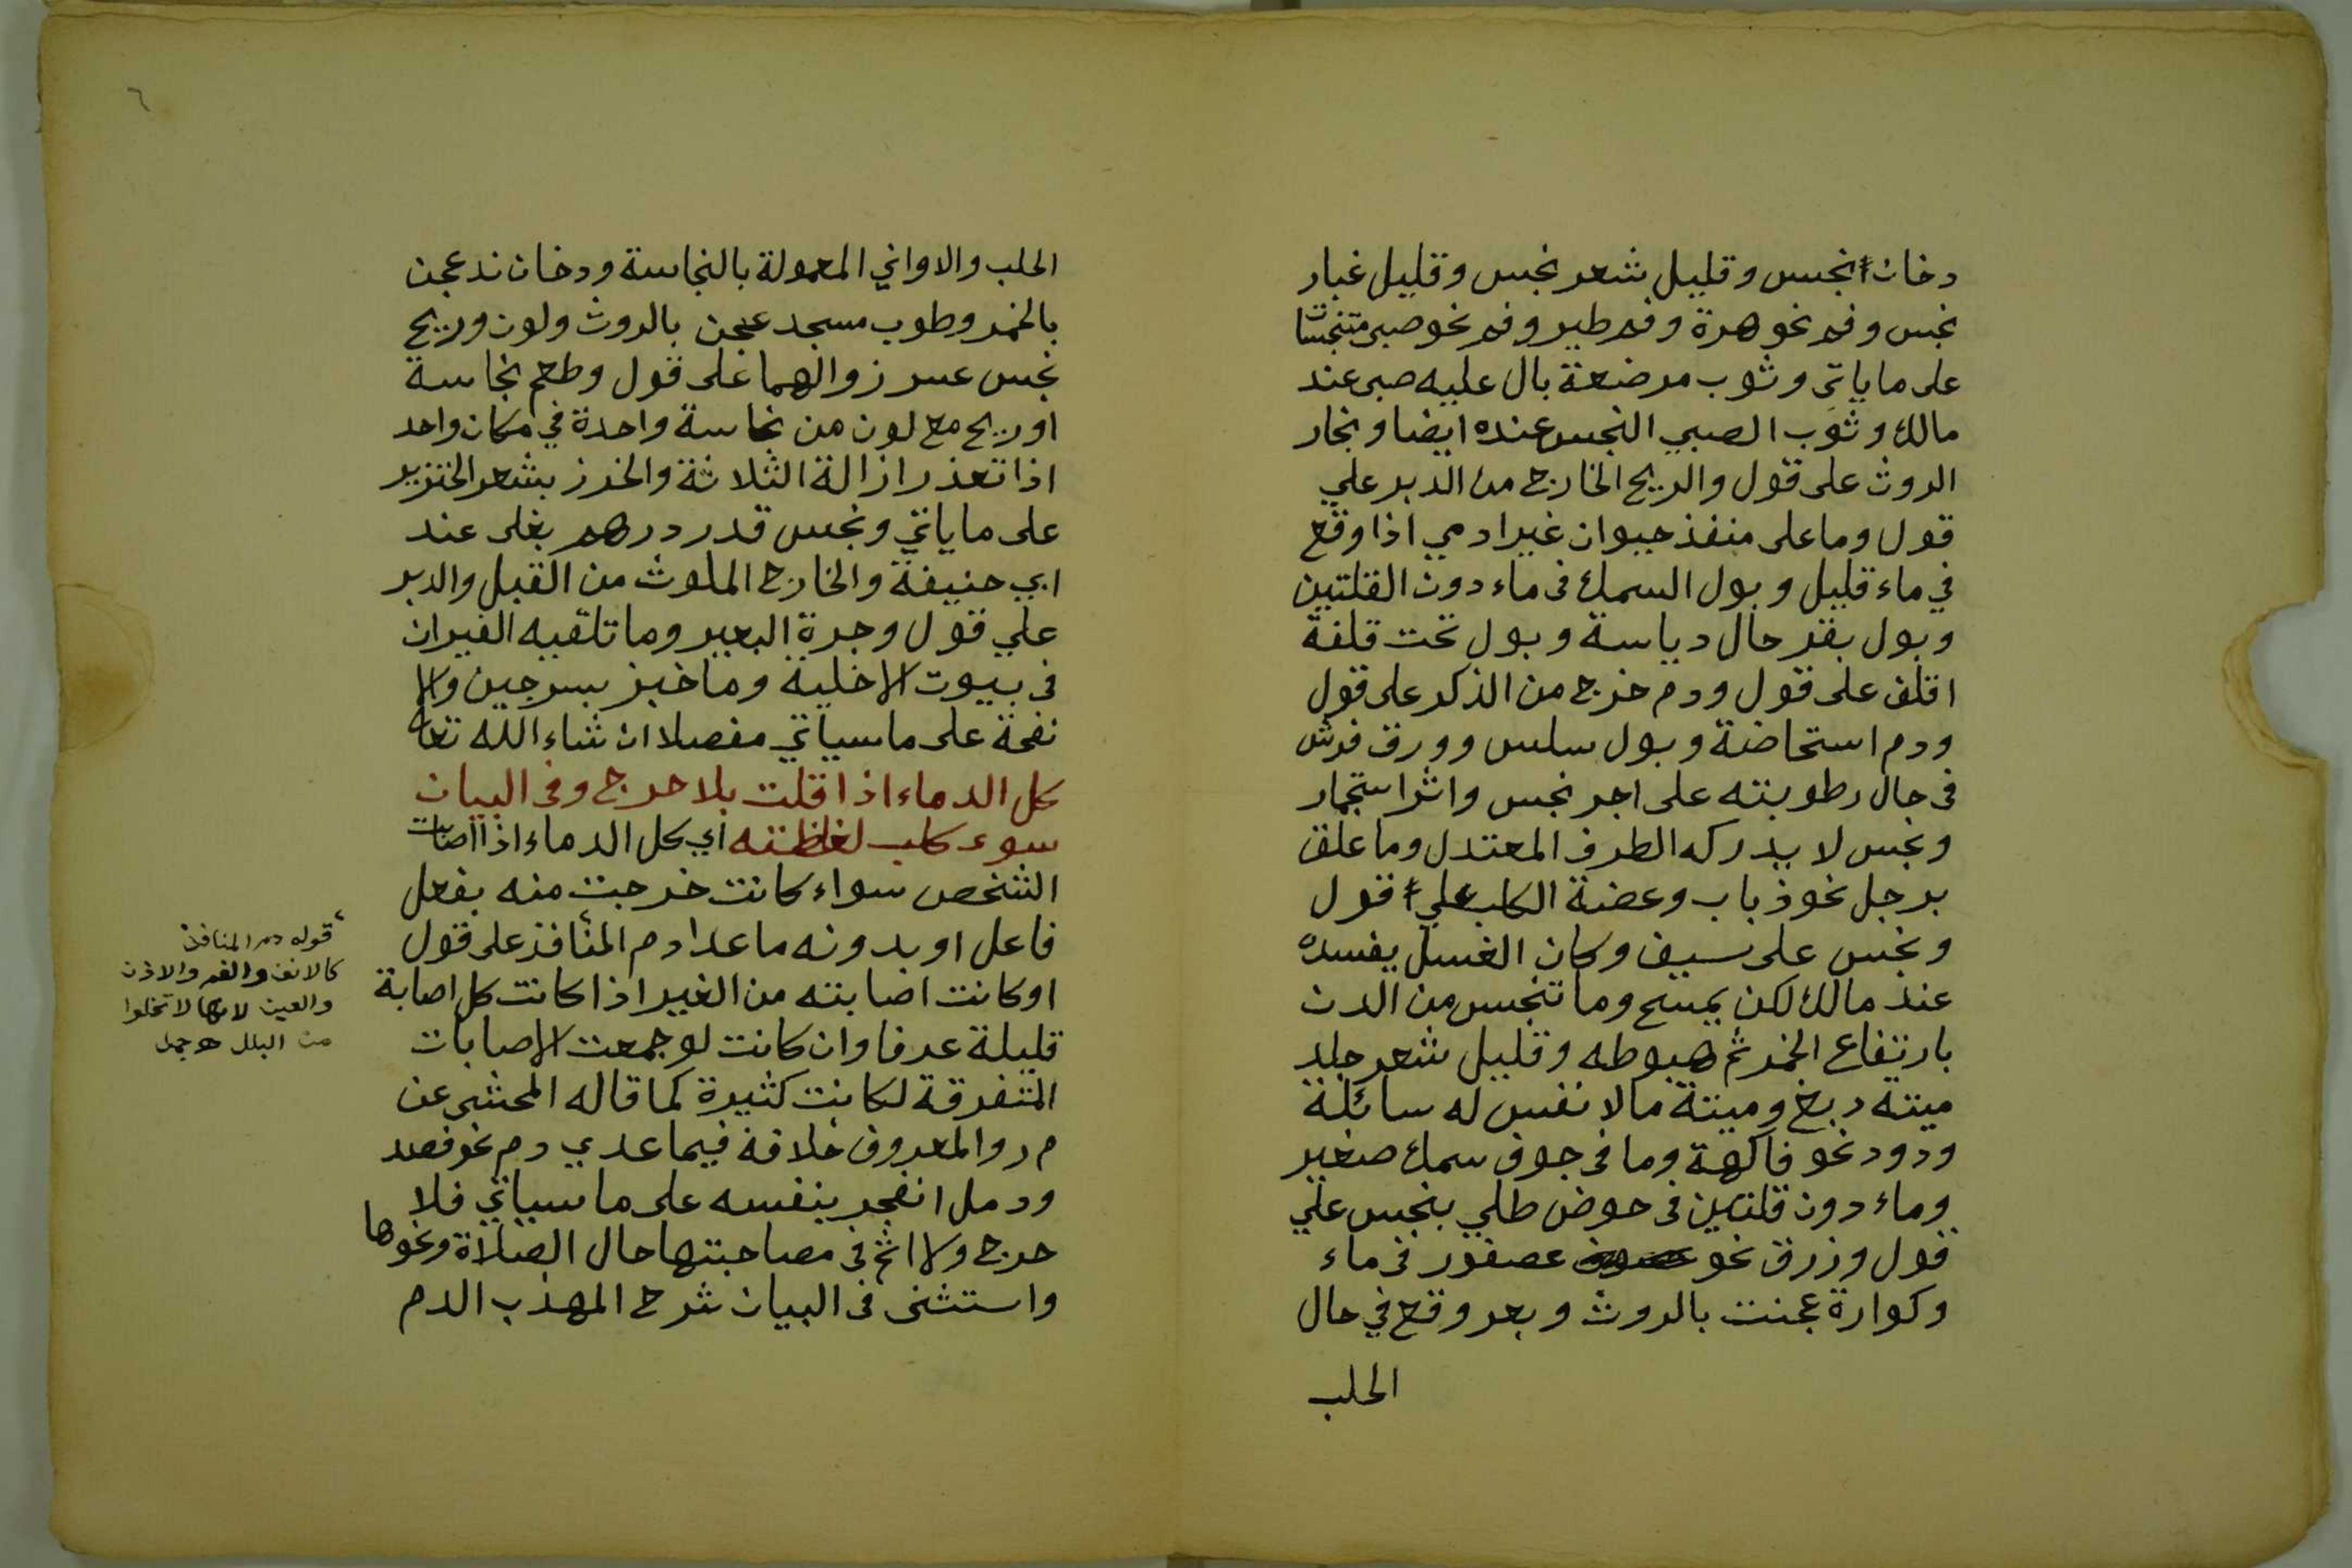 دخان نجس وقليل شعر نجس وقليل غبار
نجس وفم نحو هرة وفم طير وفم نحو صبي متنجسات
على ما ياتي وثوب مرضعة بال عليه صبي عند
مالك وثوب الصبي النجس عنده ايضا وبخار
الروث على قول والريح الخارج من الدبر علي
قول وما على منفذ حيوان غير ادمي اذا وقع
في ماء قليل وبول السمك في ماء دون القلتين
وبول بقر حال دياسة وبول تحت قلفة
اقلف على قول ودم خرج من الذكر على قول
ودم استحاضة وبول سلس وورق فرش
في حال رطوبته على اجر نجس واثر استجمار
ونجس لا يدركه الطرف المعتدل وما علق
برجل نحو ذباب وعضة الكلب علي قول
ونجس على سيف وكان الغسل يفسده
عند مالك لكن يمسح وما تنجس من الدن
بارتفاع الخمر ثم هبوطه وقليل شعر جلد
ميتة دبغ وميتة ما لا نفس له سائلة
ودود نحو فاكهة وما في جوف سمك صغير
وماء دون قلتين في حوض طلي بنجس علي
قول وزرق نحو عصفور في ماء
وكوارة عجنت بالروث وبعر وقع في حال
الحلب
٦
الحلب والاواني المعمولة بالنجاسة ودخان ند عجن
بالخمر وطوب مسجد عجن بالروث ولون وريح
نجس عسر زوالهما على قول وطعم نجاسة
او ريح مع لون من نجاسة واحدة في مكان واحد
اذا تعذر ازالة الثلاثة والخرز بشعر الخنزير
على ما ياتي ونجس قدر درهم بغلى عند
ابي حنيفة والخارج الملوث من القبل والدبر
علي قول وجرة البعير وما تلقيه الفيران
في بيوت الاخلية وما خبز بسرجين والا
نفحة على ما سياتي مفصلا ان شاء الله تعالى
كل الدماء اذا قلت بلا حرج وفي البيان
سوى كلب لغلظته اي كل الدماء اذا اصابت
الشخص سواء كانت خرجت منه بفعل
فاعل او بدونه ما عدا دم المنافذ على قول
او كانت اصابته من الغير اذا كانت كل اصابة
قليلة عرفا وان كانت لو جمعت الاصابات
المتفرقة لكانت كثيرة كما قاله المحشي عن
م ر والمعروف خلافه فيما عدي دم نحو فصد
ودمل انفجر بنفسه على ما سياتي فلا
حرج ولا اثم في مصاحبتها حال الصلاة ونحوها
واستثنى في البيان شرح المهذب الدم
قوله دم المنافذ
كالانف والفم والاذن
والعين لانها لا تخلوا
من البلل اهـ جمل